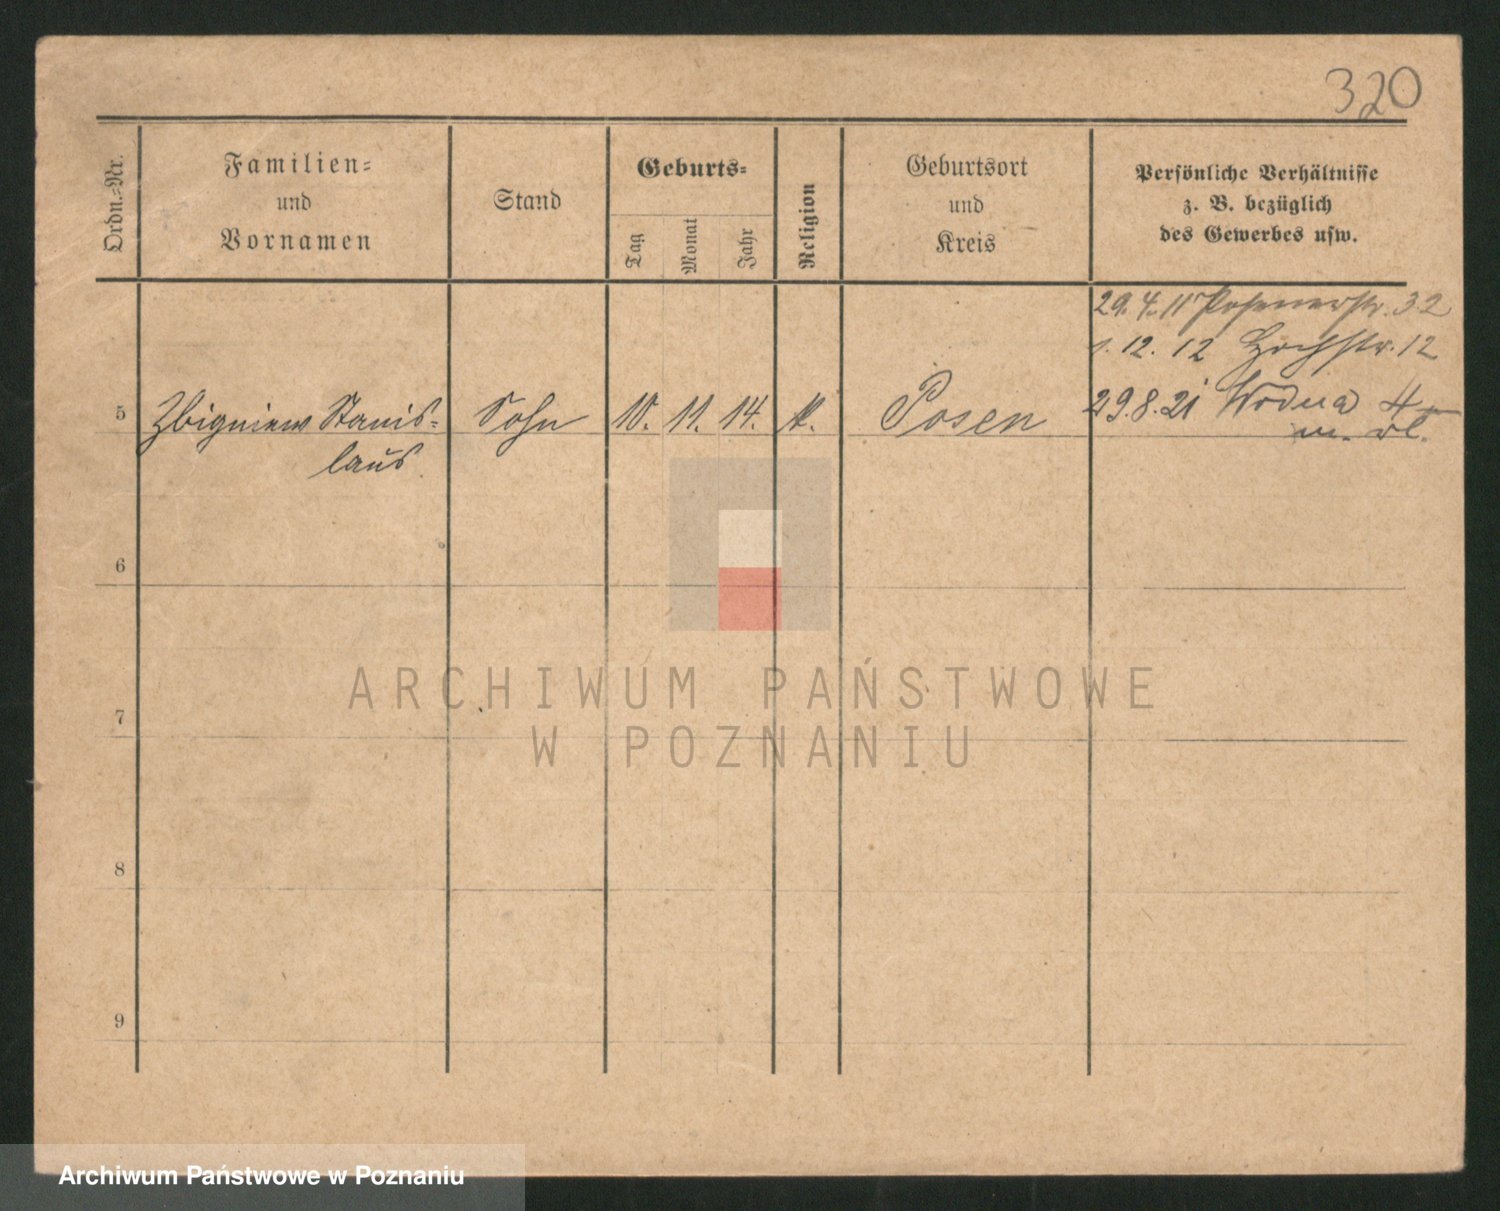 320
Ordn.-Nr.
Familien-
und
Vornamen
Stand
Geburts-
Tag
Monat
Jahr
Religion
Geburtsort
und
Kreis
Persönliche Verhältnisse
z. B. bezüglich
des Gewerbes usw.
29.4.11 Posenerstr. 32
1.12.12 Hochstr. 12
5 Zbigniew Stanis- Sohn 10. 11. 14. k. Posen 29.8.21 Wodna 4
laus
6
7
8
9
ARCHIWUM PAŃSTWOWE
W POZNANIU
Archiwum Państwowe w Poznaniu